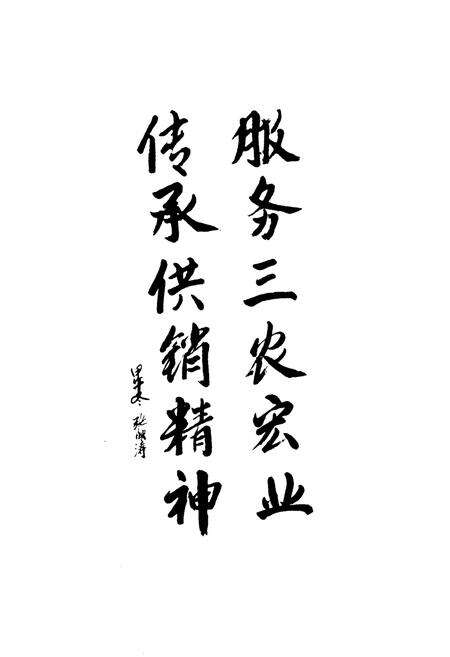 服务三农宏业
传承供销精神